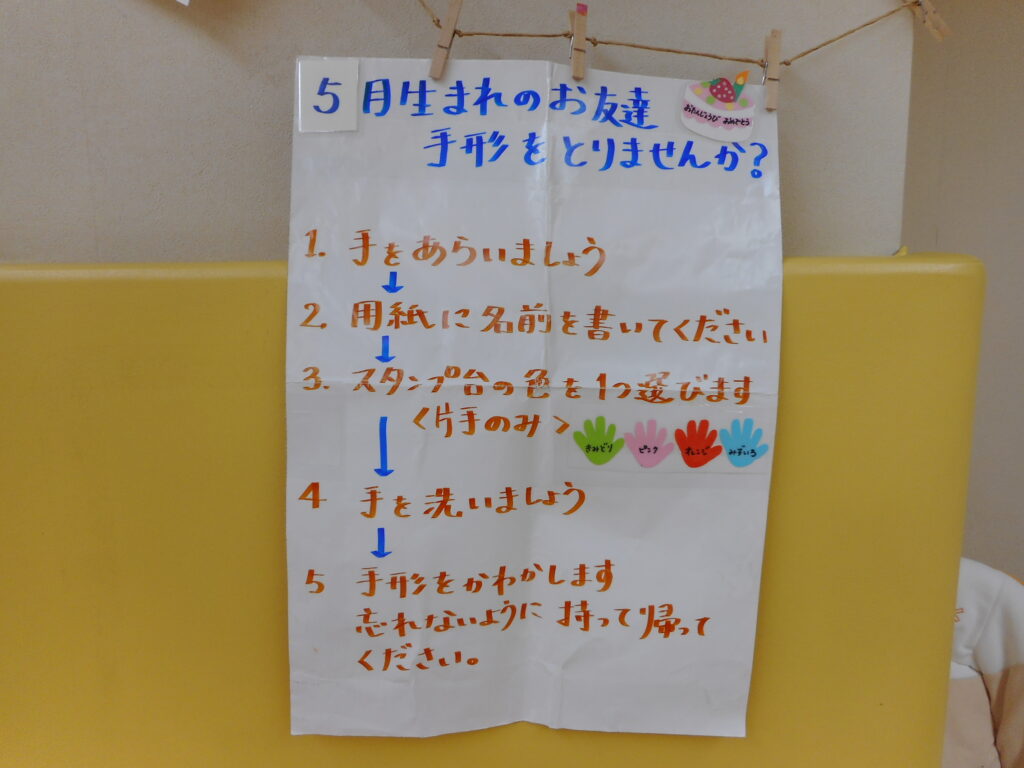 5月生まれのお友達
おたんじょうび おめでとう
手形をとりませんか?
1. 手をあらいましょう
↓
2. 用紙に名前を書いてください
↓
3. スタンプ台の色を1つ選びます
↓
<片手のみ>
きみどり ピンク オレンジ みずいろ
4 手を洗いましょう
↓
5 手形をかわかします
忘れないように持って帰って
ください。